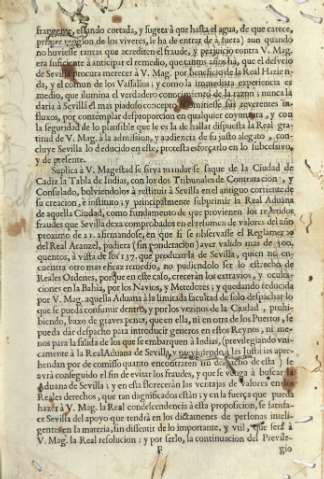 frangente, estando cortada, y sugeta à que hasta el agua, de que carece,
prevencion de los viveres, le ha de entrar de à fuera) aun quando
no huviesse ramas que acrediten el fraude, y perjuicio contra V. Mag.
era suficiente à anticipar el remedio, que tantos años hà, que el desvelo
de Sevilla procura merecer à V. Mag. por beneficio de la Real Hazienda,
y el comun de los Vassallos: y como la immediata experiencia es
medio, que ilumina el verdadero conocimiento de la razon; nunca la
daria à Sevilla el mas piadoso concepto, si omitiesse sus reverentes influxos,
por contemplar desproporcion en qualquier coyuntura, y con
la seguridad de lo plausible que se es la de hallar dispuesta la Real gratitud
de V. Mag. à la admission, y audiencia de su justo alegato, concluye
Sevilla lo deducido en este, protesta esforçarlo en lo subcessivo,
y de presente.
Suplica à V. Magestad se sirva mandar se saque de la Ciudad de
Cadiz la Tabla de Indias, con los dos Tribunales de Contratacion, y
Consulado, bolviendolos à restituir à Sevilla en el antiguo corriente de
su creacion, è instituto; y principalmente subprimir la Real Aduana
de aquella Ciudad, como fundamento de que provienen los referidos
fraudes que Sevilla dexa comprobados en el resumen de valores del año
proximo de 21. afirmando, en que si se observasse el Reglamento
del Real Aranzel, pudiera (sin ponderacion) aver valido mas de 300.
quentos, à vista de los 137. que produxo la de Sevilla, quien no encuentra
otro mas eficaz remedio, no pudiendolo ser lo estrecho de
Reales Ordenes, porque en este caso, creceràn los extravios, y ocultaciones
en la Bahia, por los Navios, y Metedores; y quedando reducida
por V. Mag. aquella Aduana à la limitada facultad de solo despachar lo
que se pueda consumir dentro, y por los vezinos de la Ciudad, prohibiendo,
baxo de graves penas, que en ella, ni en otra de los Puertos, se
pueda dar despacho para introducir generos en estos Reynos, ni menos
para la salida de los que se embarquen à Indias, (previlegiando unicamente
à la Real Aduana de Sevilla, y mandando à las Justicias aprehendan
por de comisso quantos encontraren sin despacho de esta) se
avrà conseguido el fin de evitar los fraudes, y que se venga à buscar la
Aduana de Sevilla; y en esta floreceràn las ventajas de valores en los
Reales derechos, que tan dignificados estàn; y en la fuerça que pueda
hazer à V. Mag. la Real condescendencia à esta proposicion, se satisface
Sevilla del apoyo que tendrà en los dictamenes de personas inteligentes
en la materia, sin dissentir de lo importante, y util, que serà à
V. Mag. la Real resolucion; y por serlo, la continuacion del Previle-
F gio